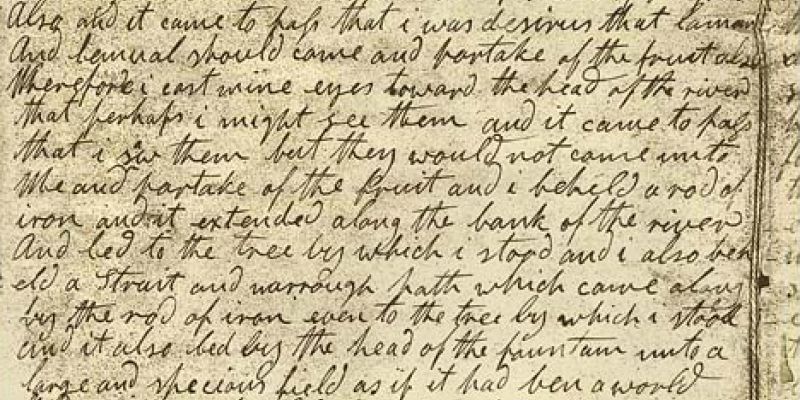 Also and it came to pass that i was desirus that Laman
And Lemuel should came and partake of the fruit also
Wherefore i cast mine eyes toward the head of the river
that perhaps i might see them and it came to pass
that i saw them but they would not come unto
Me and partake of the fruit and i beheld a rod of
iron and it extended along the bank of the river
And led to the tree by which i stood and i also beh
eld a Strait and narrough path which came along
by the rod of iron even to the tree by which i stood
and it also led by the head of the fountain unto a
large and specious field as if it had ben a world